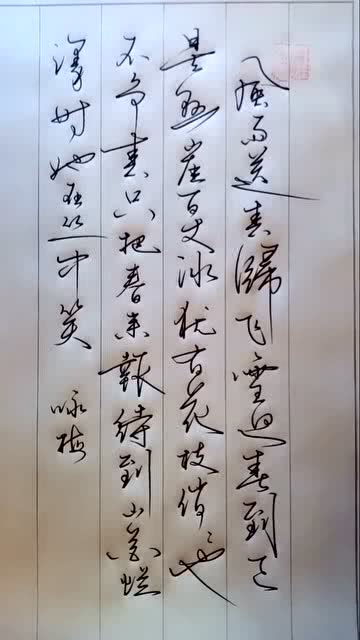 风雨送春归飞雪迎春到已
是悬崖百丈冰犹有花枝俏俏也
不争春只把春来报待到山花烂
漫时她在丛中笑 咏梅